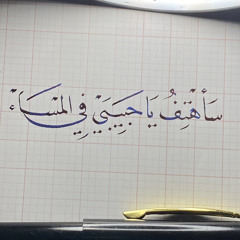 سَأَهْتِفُ يَا حَبِيبَتِي فِي الْمَسَاءْ